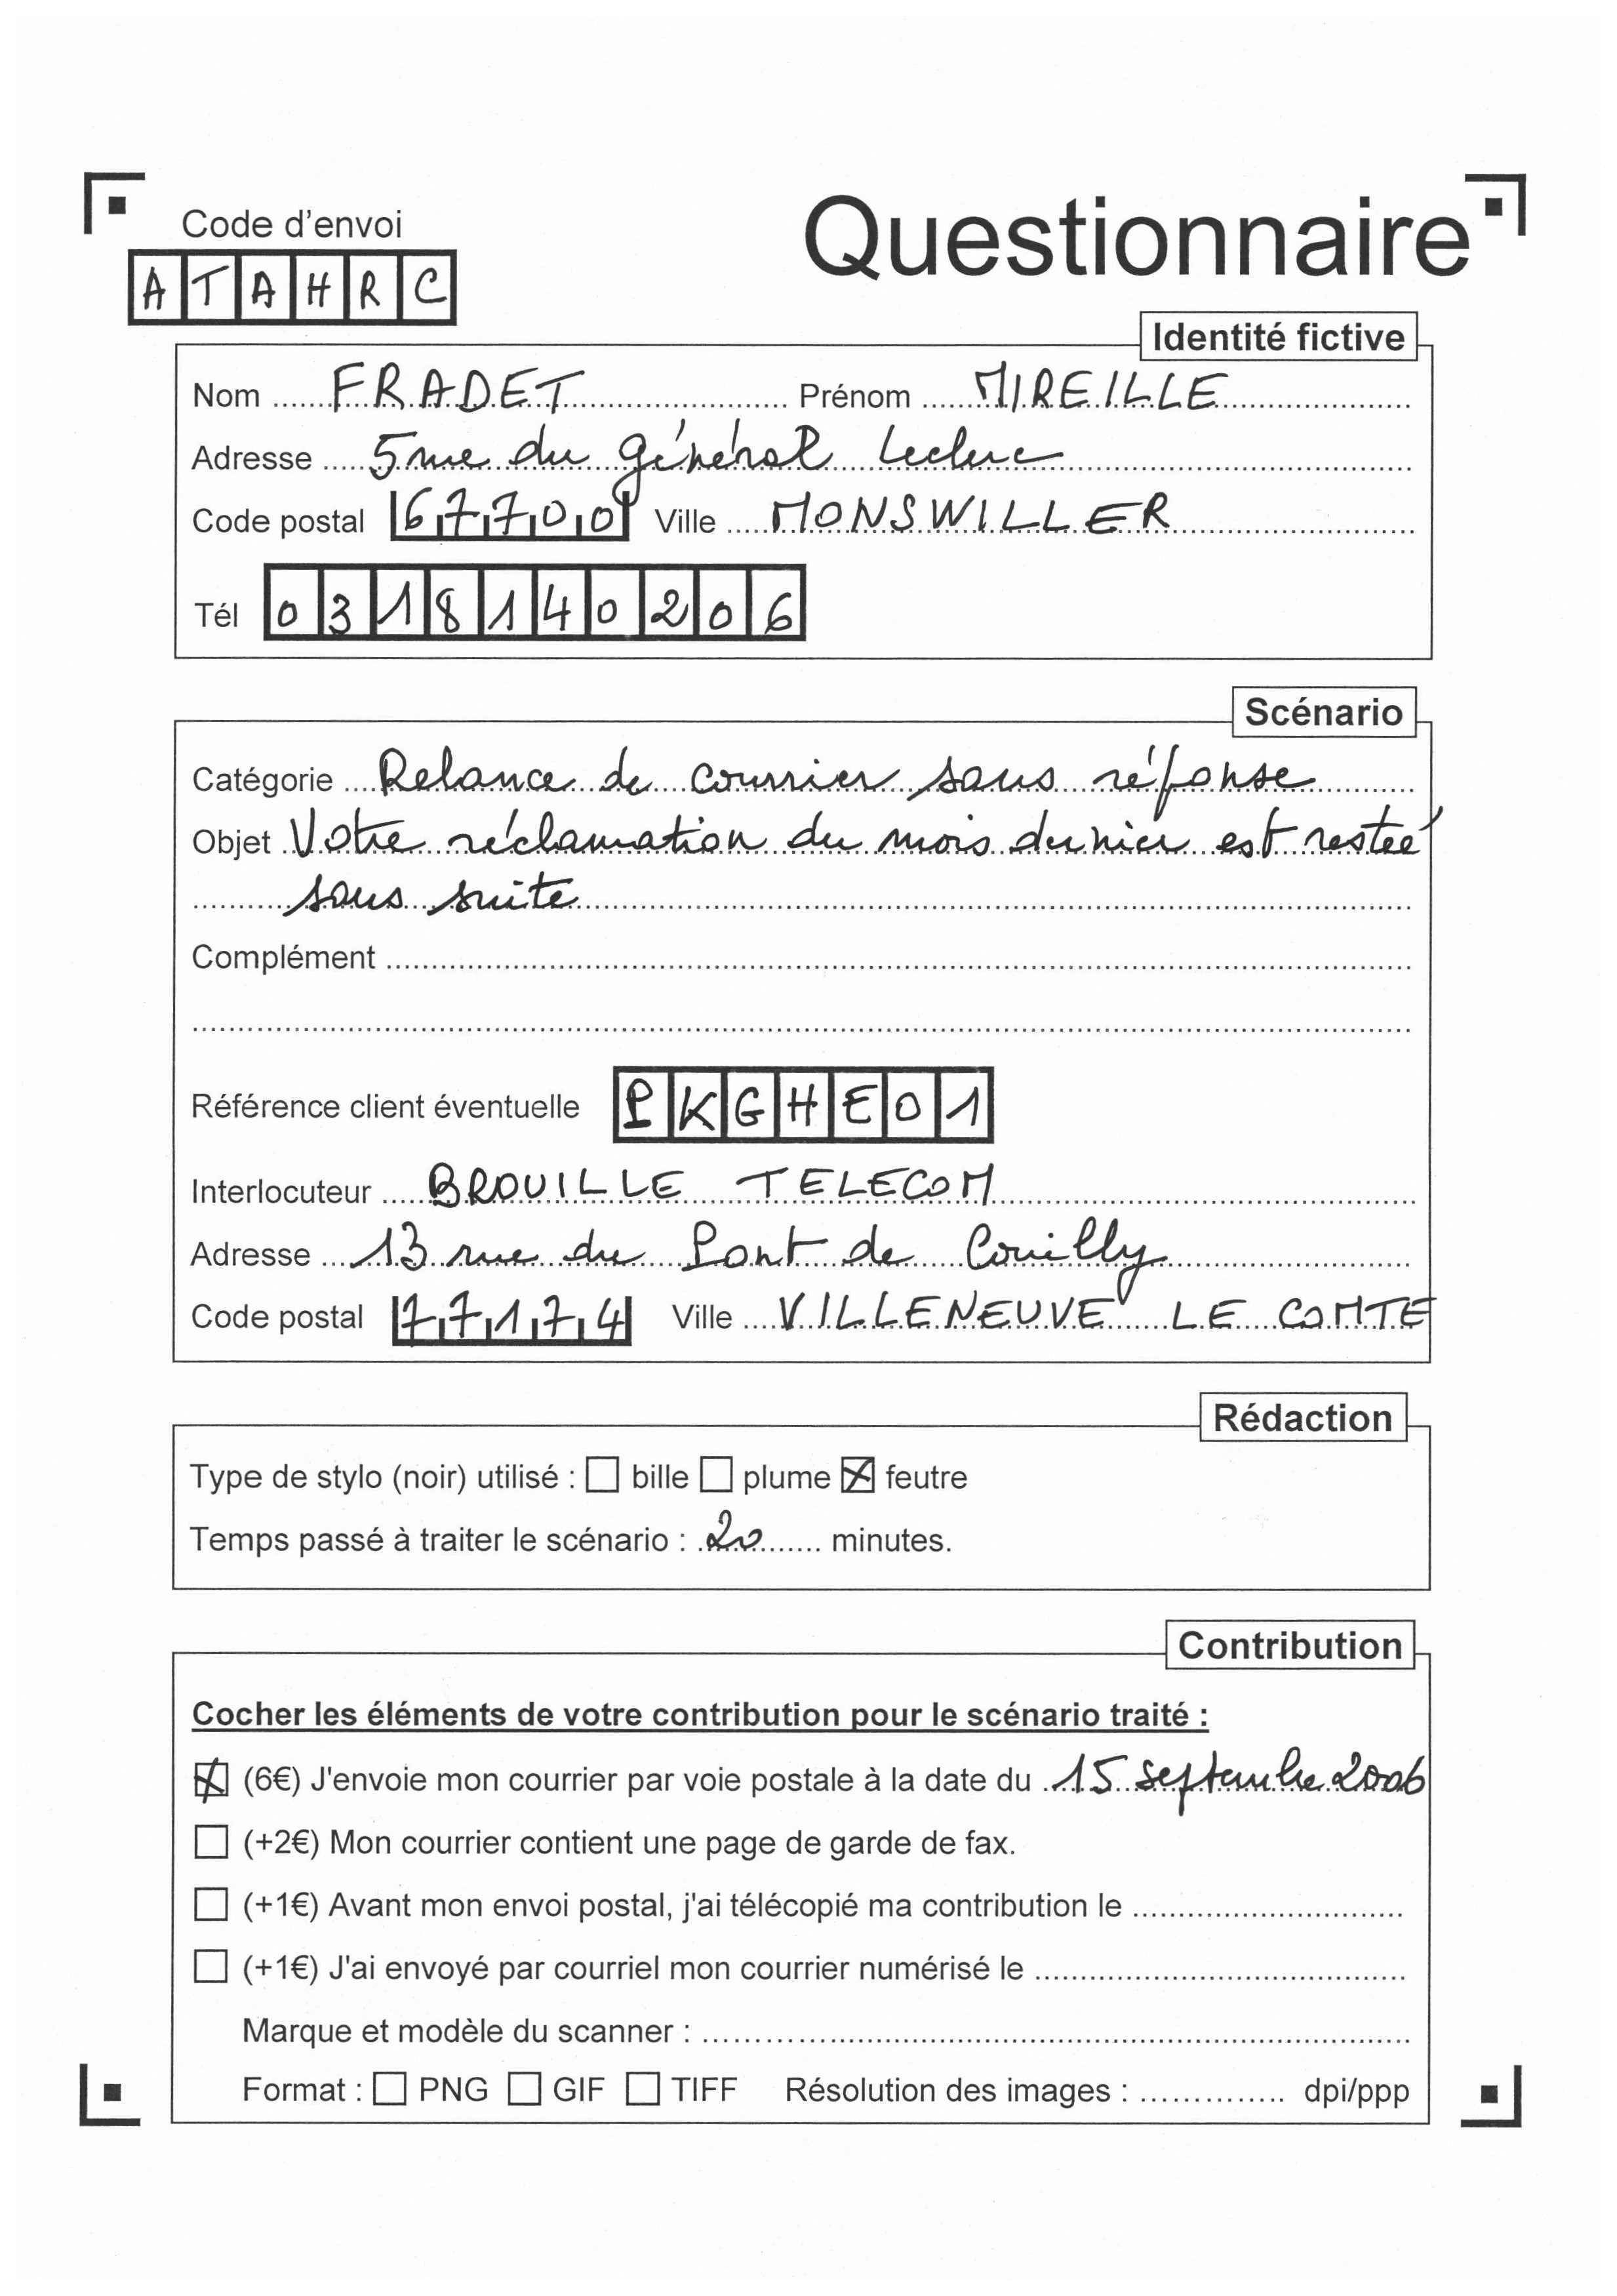 Code d'envoi
Questionnaire
ATAHRC
Identité fictive
Nom FRADET Prénom MIREILLE
Adresse 5 rue du général Leclerc
Code postal 67700 Ville MONSWILLER
Tél 0318140206
Scénario
Catégorie Relance de courrier sans réponse
Objet Votre réclamation du mois dernier est restée
sans suite
Complément
Référence client éventuelle PKGHE01
Interlocuteur BROUILLE TELECOM
Adresse 13 rue du Pont de Couilly
Code postal 77174 Ville VILLENEUVE LE COMTE
Rédaction
Type de stylo (noir) utilisé : ☐ bille ☐ plume ☒ feutre
Temps passé à traiter le scénario : 20 minutes.
Contribution
Cocher les éléments de votre contribution pour le scénario traité :
☒ (6€) J'envoie mon courrier par voie postale à la date du 15 septembre 2006
☐ (+2€) Mon courrier contient une page de garde de fax.
☐ (+1€) Avant mon envoi postal, j'ai télécopié ma contribution le
☐ (+1€) J'ai envoyé par courriel mon courrier numérisé le
Marque et modèle du scanner :
Format : ☐ PNG ☐ GIF ☐ TIFF Résolution des images : dpi/ppp